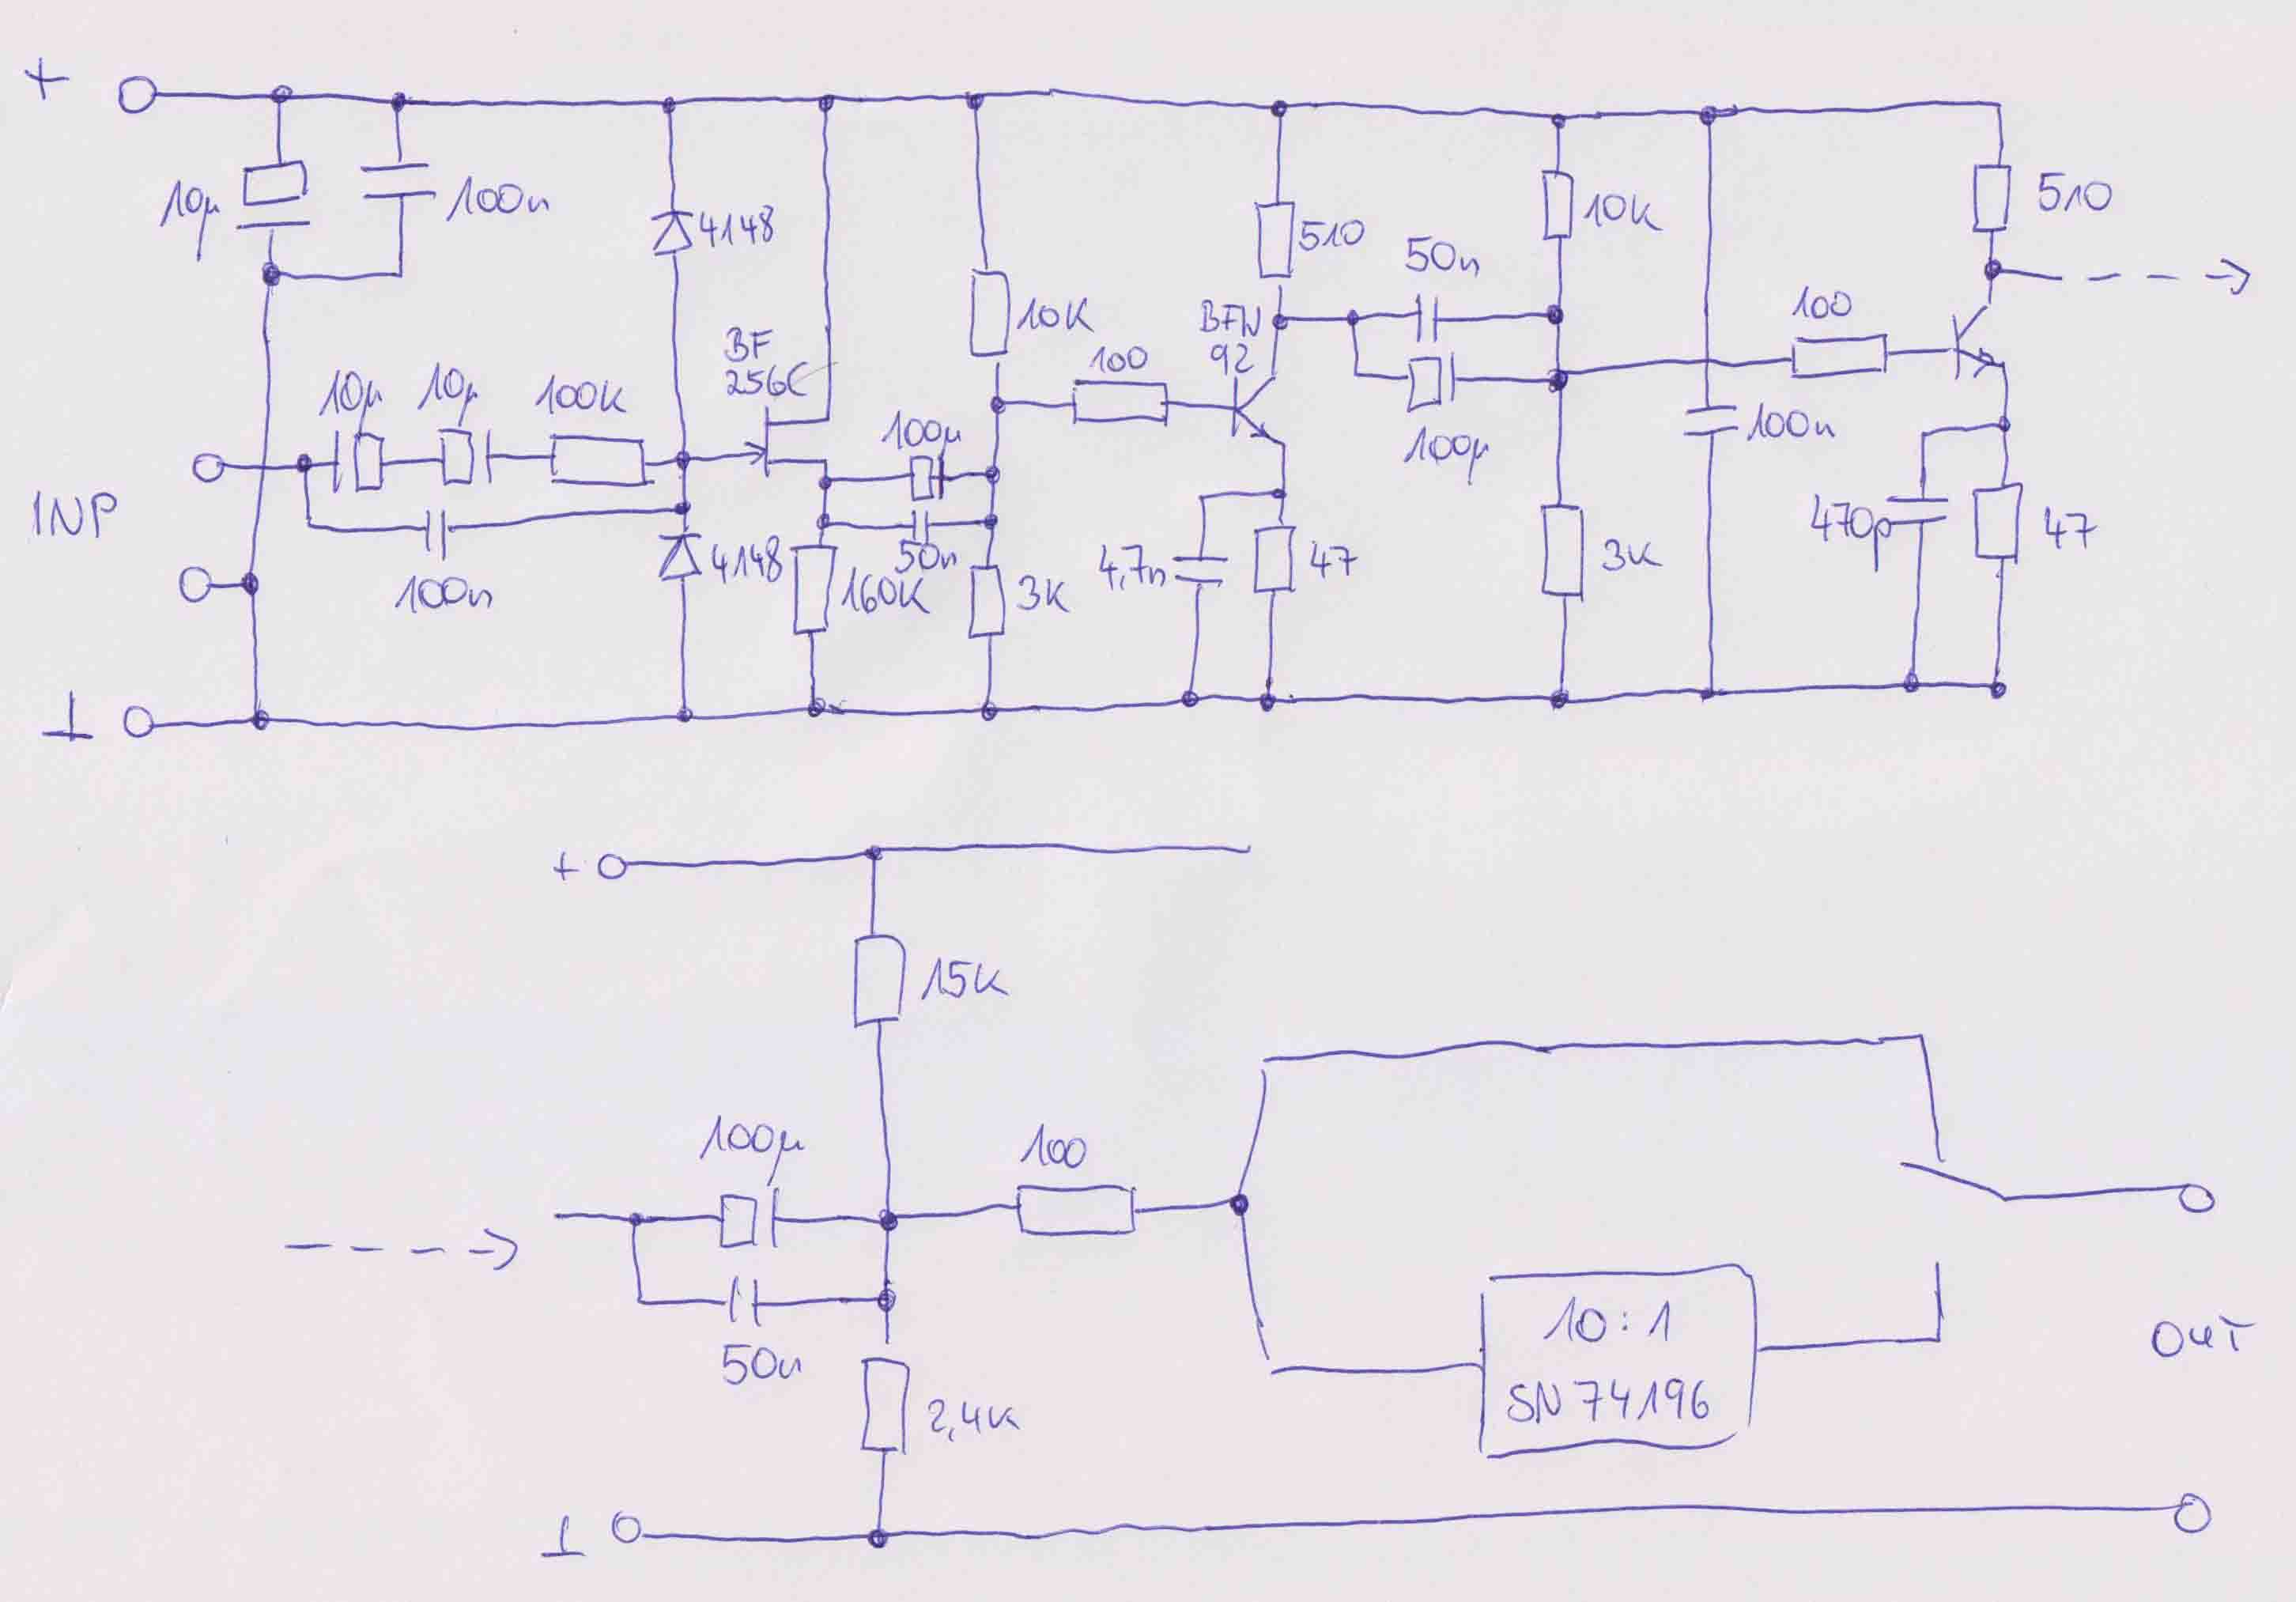 +
10µ
100n
4148
10K
510
50n
10K
510
BF
256C
100
BFW
92
100µ
100
10µ
10µ
100K
100µ
100n
INP
100n
4148
160K
50n
3K
4,7n
47
3K
470p
47
⊥
+
15K
100µ
100
50n
2,4K
10:1
SN74196
OUT
⊥